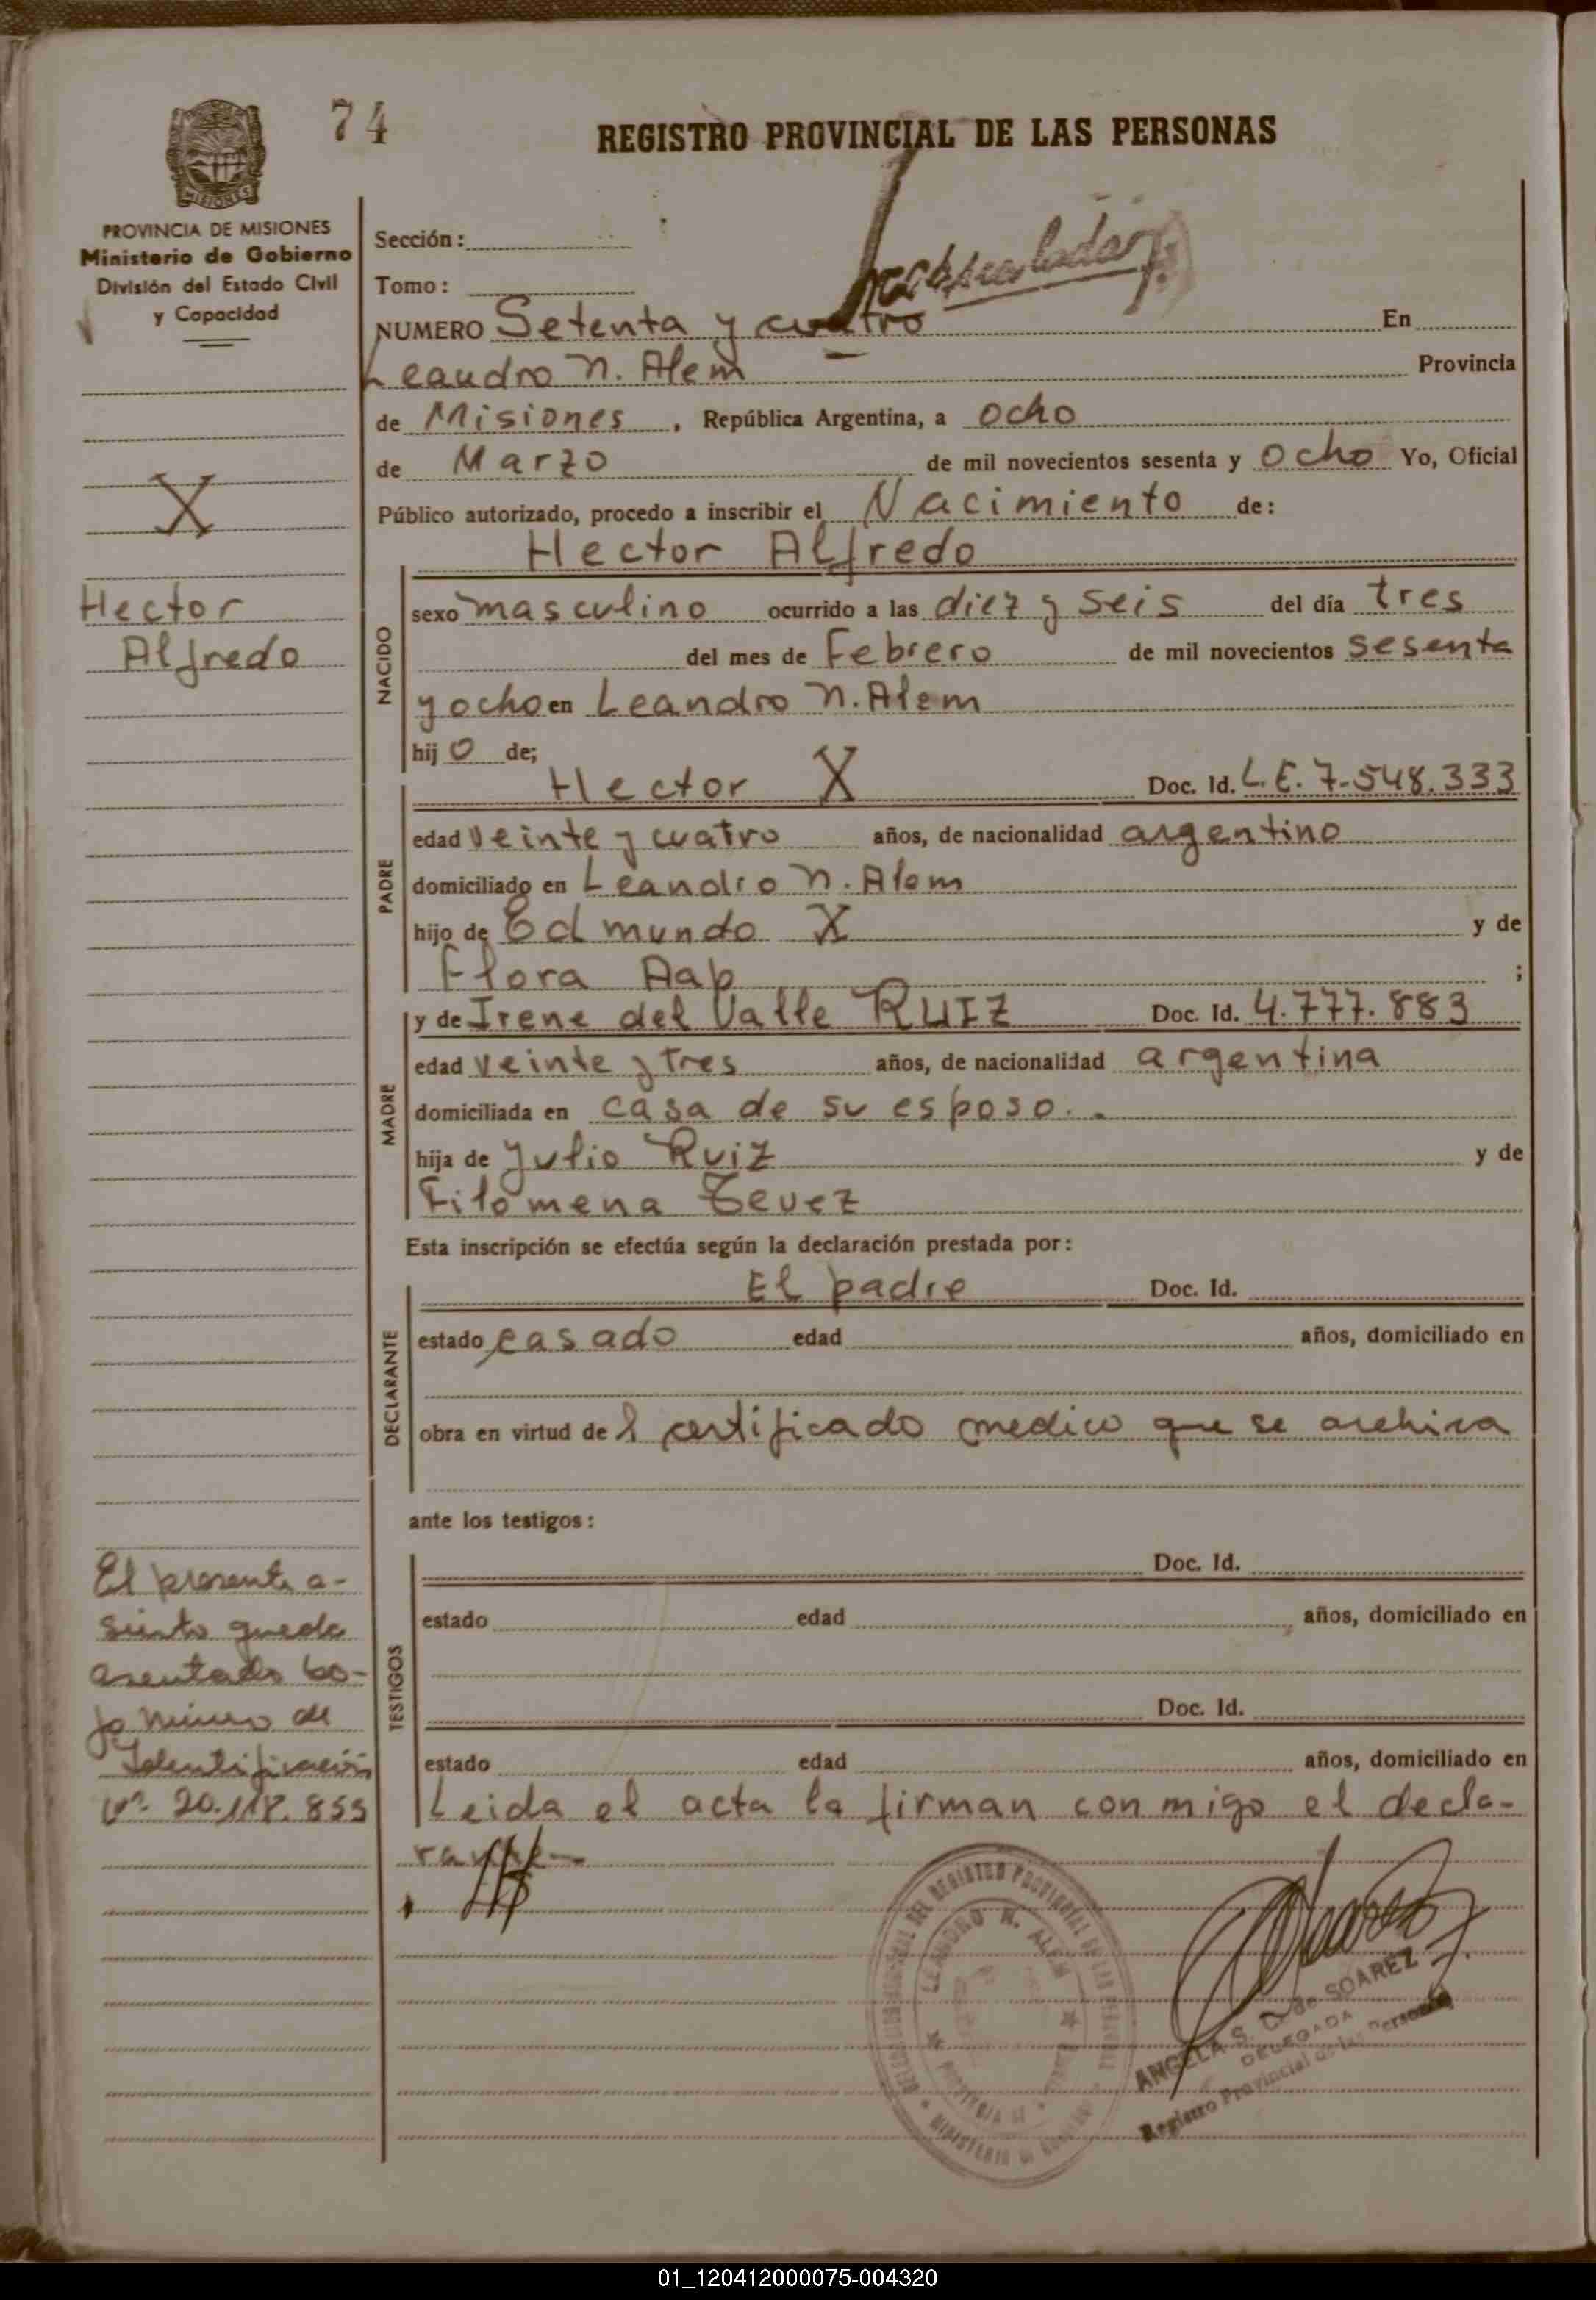 74
REGISTRO PROVINCIAL DE LAS PERSONAS
MISIONES
PROVINCIA DE MISIONES
Ministerio de Gobierno
División del Estado Civil
y Capacidad
Sección:
Tomo:
NUMERO Setenta y cuatro En
Leandro N. Alem Provincia
de Misiones, República Argentina, a ocho
de Marzo de mil novecientos sesenta y ocho Yo, Oficial
Público autorizado, procedo a inscribir el Nacimiento de:
X
Hector Alfredo
Hector
Alfredo
NACIDO
sexo masculino ocurrido a las diez y seis del día tres
del mes de Febrero de mil novecientos sesenta
y ocho en Leandro N. Alem
hijo de;
PADRE
Hector X Doc. Id. L.E. 7.548.333
edad veinte y cuatro años, de nacionalidad argentino
domiciliado en Leandro N. Alem
hijo de Edmundo X y de
Flora Aap ;
MADRE
y de Irene del Valle RUIZ Doc. Id. 4.777.883
edad veinte y tres años, de nacionalidad argentina
domiciliada en casa de su esposo.
hija de Julio Ruiz y de
Filomena Tevez
Esta inscripción se efectúa según la declaración prestada por:
DECLARANTE
El padre Doc. Id.
estado casado edad años, domiciliado en
obra en virtud del certificado medico que se archiva
ante los testigos:
TESTIGOS
Doc. Id.
estado edad años, domiciliado en
Doc. Id.
estado edad años, domiciliado en
El presente a-
siento queda
asentado ba-
jo número de
Identificación
Nº 20.118.855
Leida el acta la firman conmigo el decla-
rante-
LEANDRO N. ALEM
ANGELA S. de SOAREZ
DELEGADA
Registro Provincial de las Personas
01_120412000075-004320